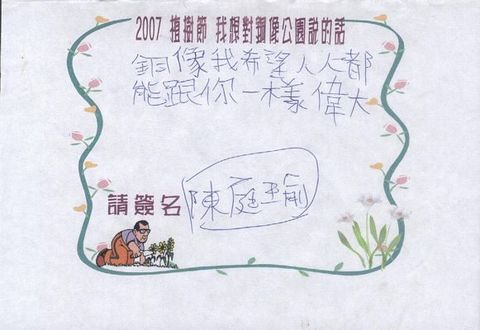 2007 植樹節 我想對銅像公園說的話
銅像我希望人人都
能跟你一樣偉大
請簽名 陳庭瑜